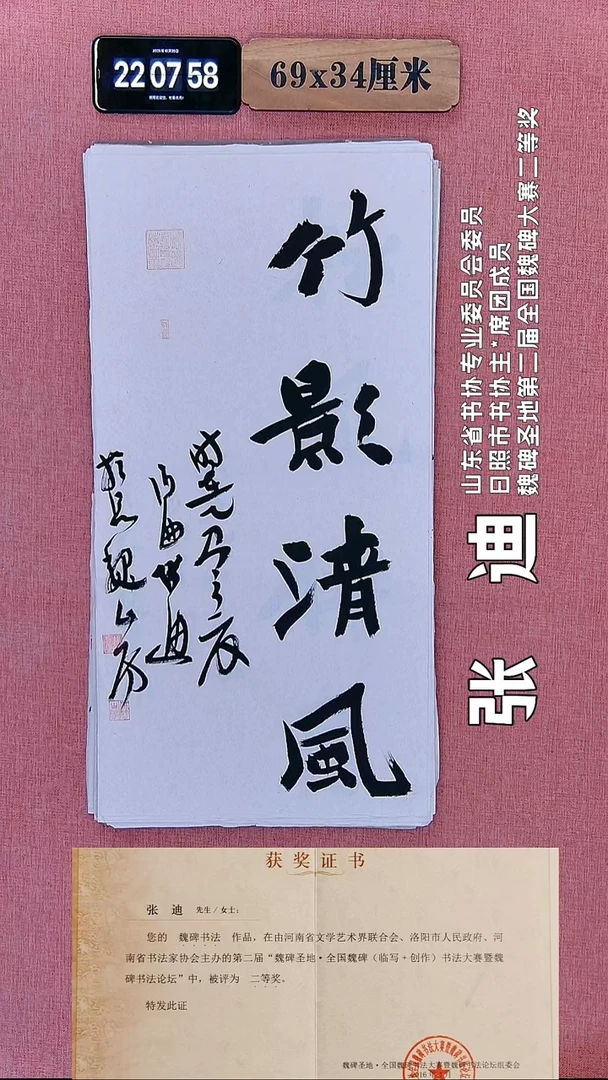 22 07 58
69x34厘米
竹影清風
山东省书协专业委员会委员
日照市书协主*席团成员
魏碑圣地第二届全国魏碑大赛二等奖
张 迪
获奖证书
张 迪 先生/女士:
您的 魏碑书法 作品，在由河南省文学艺术界联合会、洛阳市人民政府、河
南省书法家协会主办的第二届“魏碑圣地·全国魏碑（临写+创作）书法大赛暨魏
碑书法论坛”中，被评为 二等奖。
特发此证
魏碑圣地·全国魏碑书法大赛暨魏碑书法论坛组委会